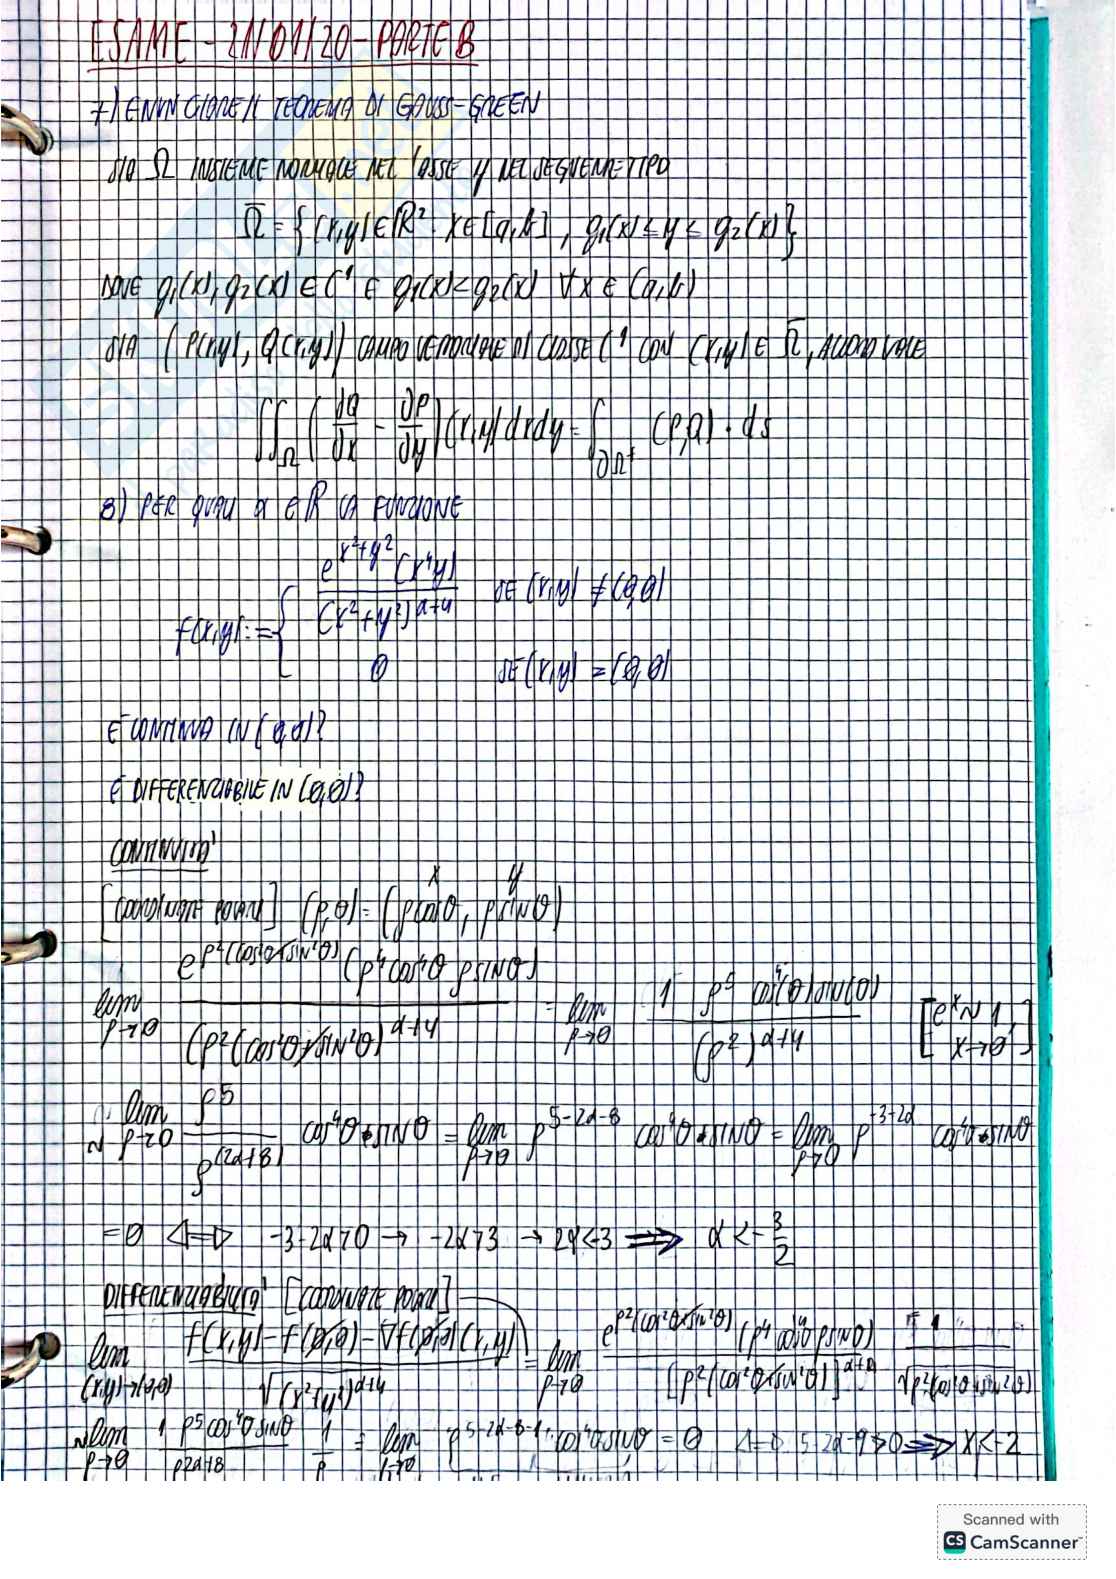 ESAME - 21/01/20 - PARTE B
7) ENUNCIARE IL TEOREMA DI GAUSS-GREEN
SIA Ω INSIEME NORMALE DEL L'ASSE y DEL SEGUENTE TIPO
Ω̄ = {(x,y) ∈ ℝ² x ∈ [a,b], g₁(x) ≤ y ≤ g₂(x)}
DOVE g₁(x), g₂(x) ∈ C¹ E g₁(x) < g₂(x) ∀x ∈ (a,b)
SIA (P(x,y), Q(x,y)) CAMPO VETTORIALE DI CLASSE C¹ CON (x,y) ∈ Ω̄, ALLORA VALE
∬_Ω (∂Q/∂x - ∂P/∂y)(x,y) dxdy = ∫_∂Ω⁺ (P,Q) · ds
8) PER QUALI α ∈ ℝ LA FUNZIONE
f(x,y) := { e^(x²+y²) (x⁴y) / (x²+y²)^(α+4) SE (x,y) ≠ (0,0)
0 SE (x,y) = (0,0)
È CONTINUA IN (0,0)?
È DIFFERENZIABILE IN (0,0)?
CONTINUITA'
x y
[COORDINATE POLARI] (ρ,θ) = (ρcosθ, ρsinθ)
lim ρ→0 e^(ρ²(cos²θ+sin²θ)) (ρ⁴cos⁴θ ρsinθ) / (ρ²(cos²θ+sin²θ))^(α+4) = lim ρ→0 1 ρ⁵ cos⁴(θ)sin(θ) / (ρ²)^(α+4) [eˣ ~ 1, x→0]
~ lim ρ→0 ρ⁵ / ρ^(2α+8) cos⁴θ·sinθ = lim ρ→0 ρ^(5-2α-8) cos⁴θ·sinθ = lim ρ→0 ρ^(-3-2α) cos⁴θ·sinθ
= 0 ⟺ -3-2α>0 → -2α>3 → 2α<-3 ⟹ α < -3/2
DIFFERENZIABILITA' [COORDINATE POLARI]
lim (x,y)→(0,0) f(x,y) - f(0,0) - ∇f(0,0)(x,y) / √(x²+y²)^(α+4) = lim ρ→0 e^(ρ²(cos²θ+sin²θ)) (ρ⁴cos⁴θ ρsinθ) / [ρ²(cos²θ+sin²θ)]^(α+4) · 1 / √ρ²(cos²θ+sin²θ)
~ lim ρ→0 1 ρ⁵cos⁴θ sinθ / ρ^(2α+8) 1/ρ = lim ρ→0 ρ^(5-2α-8-1) · cos⁴θ sinθ = 0 ⟺ 5-2α-9>0 ⟹ x<-2
Scanned with
CS CamScanner